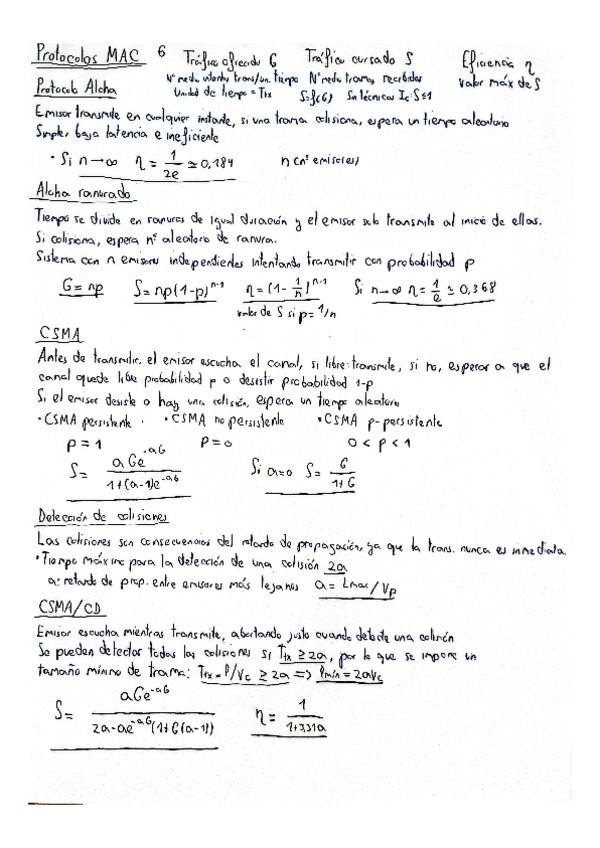 Protocolos MAC 6 Tráfico ofrecido G Tráfico cursado S Eficiencia η
Nº medio intentos trans/un. tiempo Nº medio tramas recibidas Valor máx de S
Protocolo Aloha Unidad de tiempo = Ttx S=f(G) Sin técnicas Ic: S≤1
Emisor transmite en cualquier instante, si una trama colisiona, espera un tiempo aleatorio
Simple, baja latencia e ineficiente
· Si n→∞ η = 1/2e ≃ 0,184 n (nº emisores)
Aloha ranurado
Tiempo se divide en ranuras de igual duración y el emisor solo transmite al inicio de ellas.
Si colisiona, espera nº aleatorio de ranura.
Sistema con n emisores independientes intentando transmitir con probabilidad p
G = np S = np(1-p)^n-1 η = (1 - 1/n)^n-1 Si n→∞ η = 1/e ≃ 0,368
valor de S si p = 1/n
CSMA
Antes de transmitir, el emisor escucha el canal, si libre: transmite, si no, esperar a que el
canal quede libre probabilidad p o desistir probabilidad 1-p
Si el emisor desiste o hay una colisión, espera un tiempo aleatorio
· CSMA persistente · CSMA no persistente · CSMA p-persistente
p = 1 p = 0 0 < p < 1
S = aGe^-aG / 1+(a-1)e^-aG Si a=0 S = G / 1+G
Detección de colisiones
Las colisiones son consecuencias del retardo de propagación, ya que la trans. nunca es inmediata.
· Tiempo máximo para la detección de una colisión 2a
a: retardo de prop. entre emisores más lejanos a = Lmax/Vp
CSMA/CD
Emisor escucha mientras transmite, abortando justo cuando detecte una colisión
Se pueden detectar todas las colisiones si Ttx ≥ 2a, por lo que se impone un
tamaño mínimo de trama: Ttx = P/Vc ≥ 2a => Pmin = 2aVc
S = aGe^-aG / 2a-ae^-aG(1+G(a-1)) η = 1 / 1+3,31a